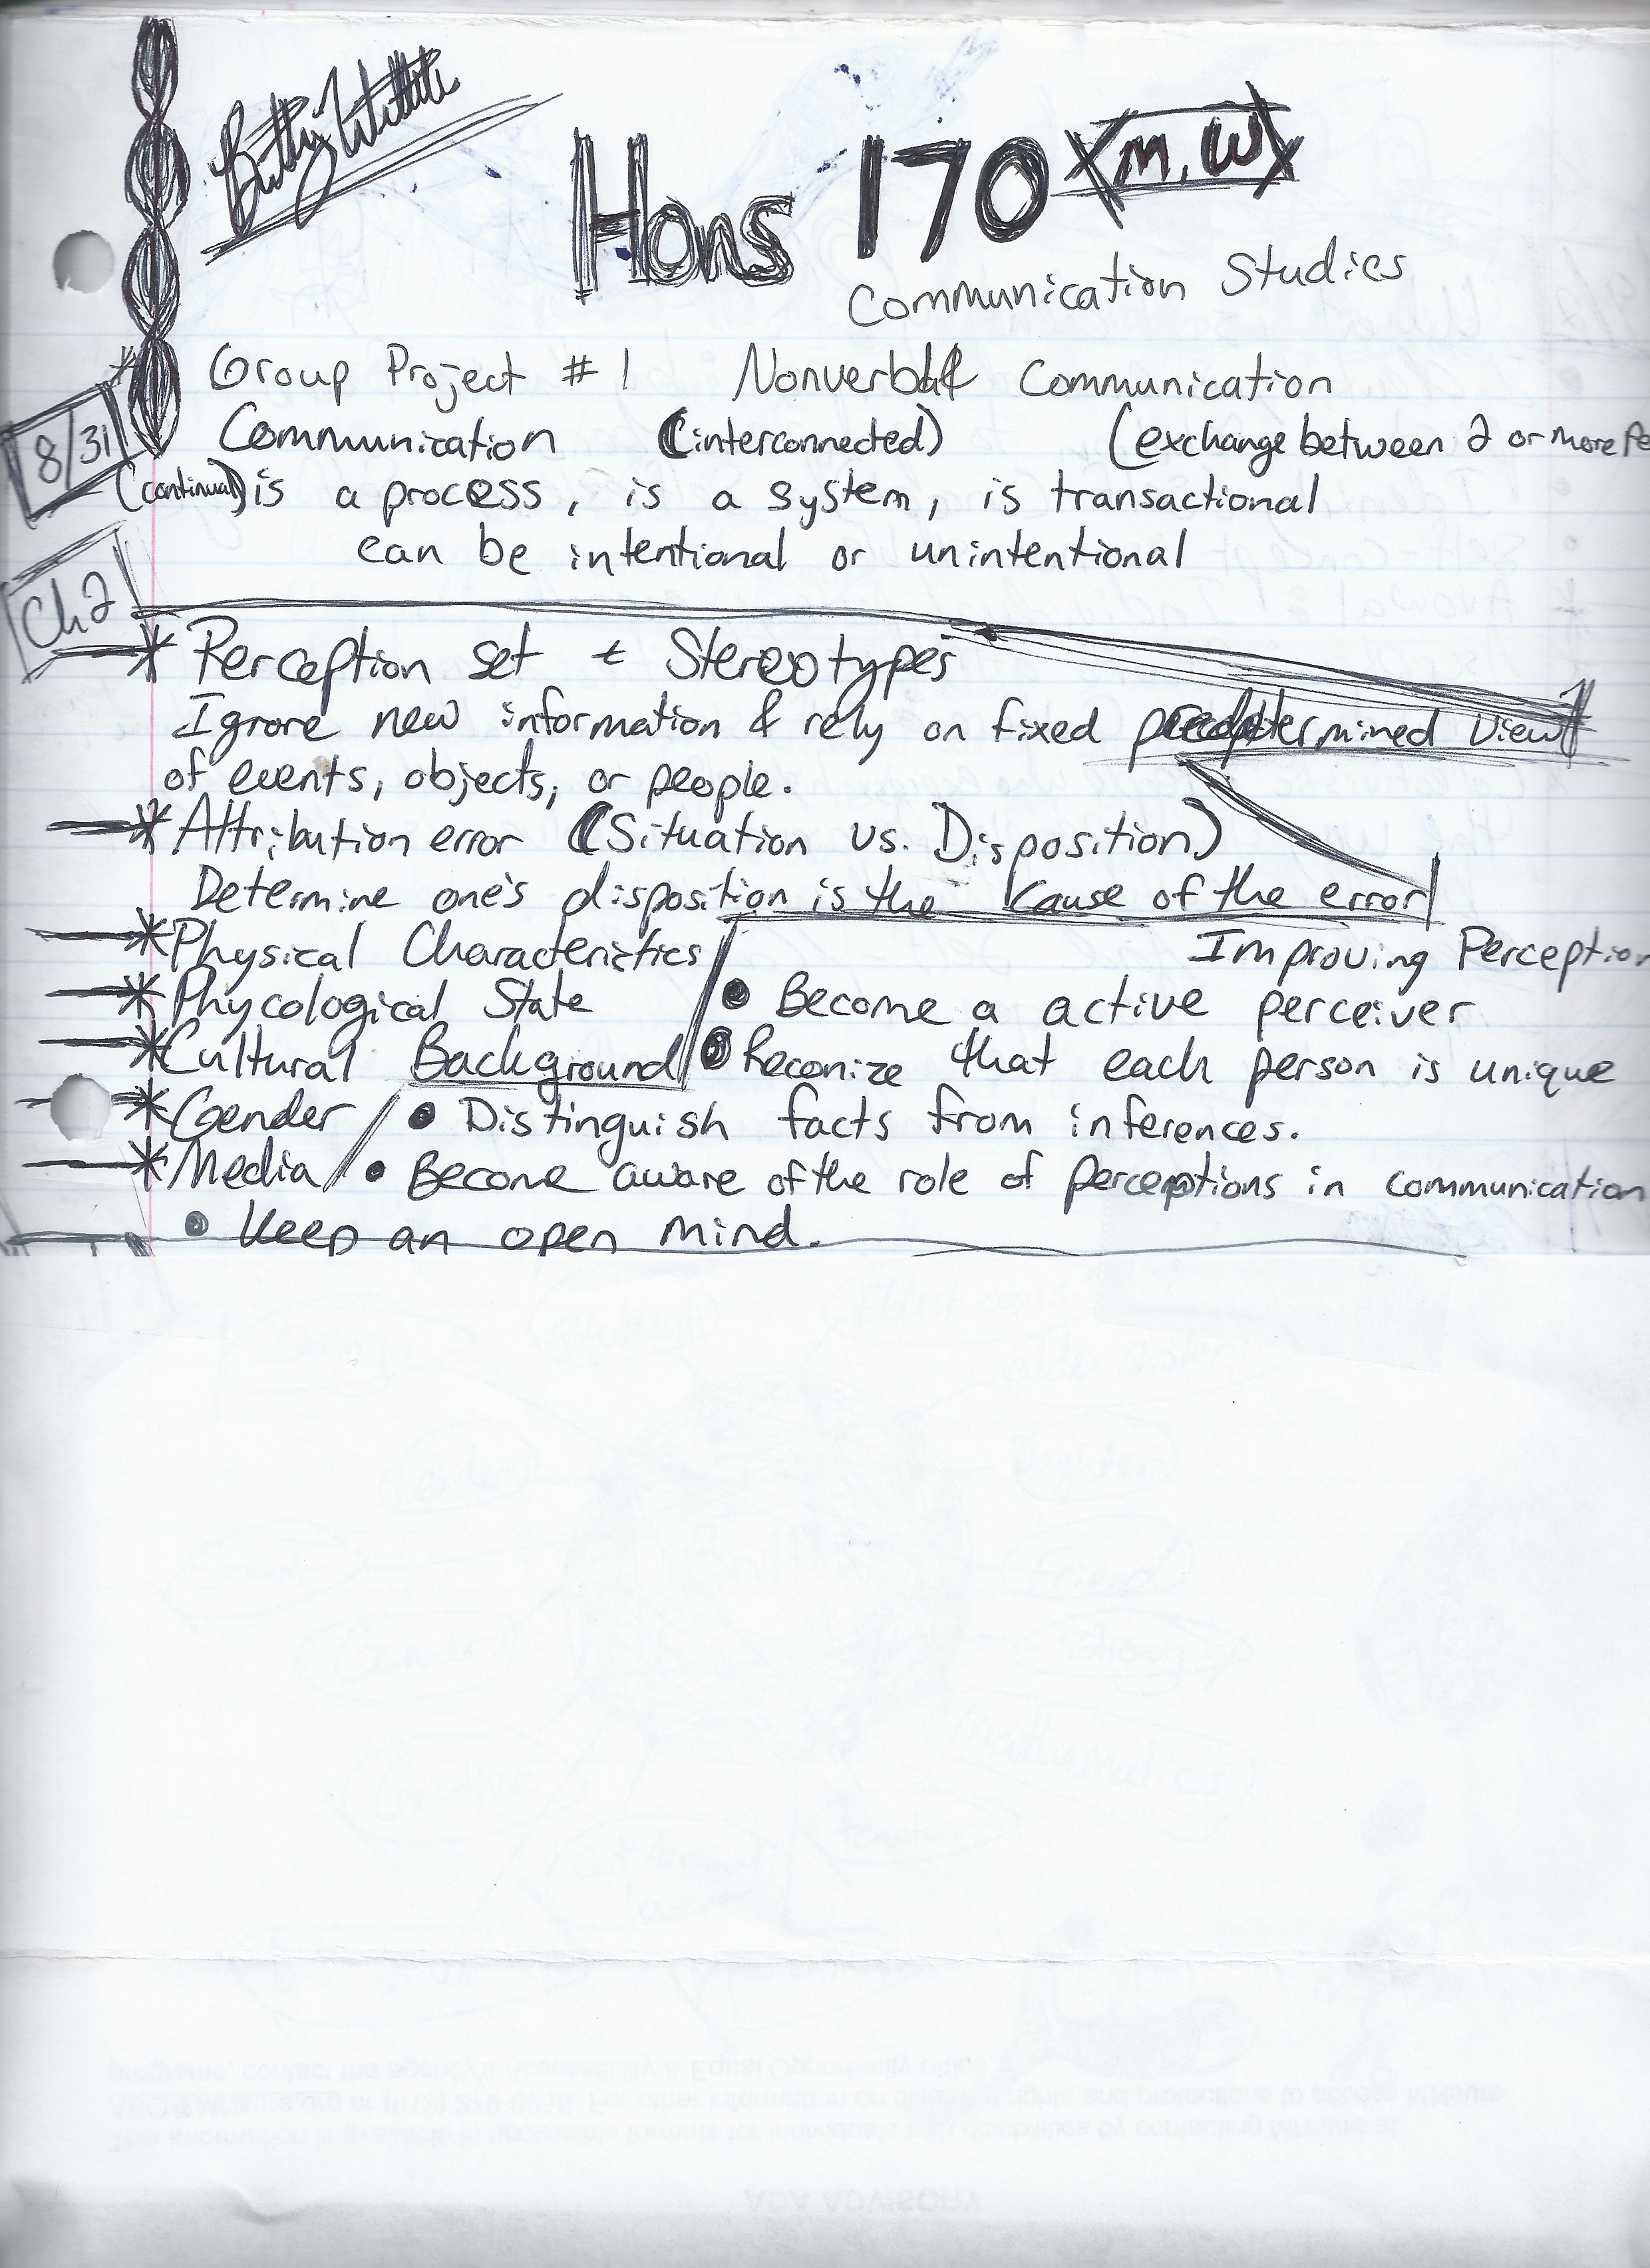 Hons 170 (M, W)
Communication Studies
* Group Project #1 Nonverbal Communication
8/31
Communication (interconnected) (exchange between 2 or more Pe
(continual) is a process, is a system, is transactional
can be intentional or unintentional
Ch 2
* Perception set & Stereotypes
Ignore new information & rely on fixed predetermined view
of events, objects, or people.
* Attribution error (Situation vs. Disposition)
Determine one's disposition is the cause of the error
* Physical Characterictics
Improving Perception
* Phycological State
• Become a active perceiver
* Cultural Background
• Reconize that each person is unique
* Gender
• Distinguish facts from inferences.
* Media
• Become aware of the role of perceptions in communication
• Keep an open mind.
Friend
mathematics
programs, contact the agency's Accessibility & Equal Opportunity office
ADA ADVISORY